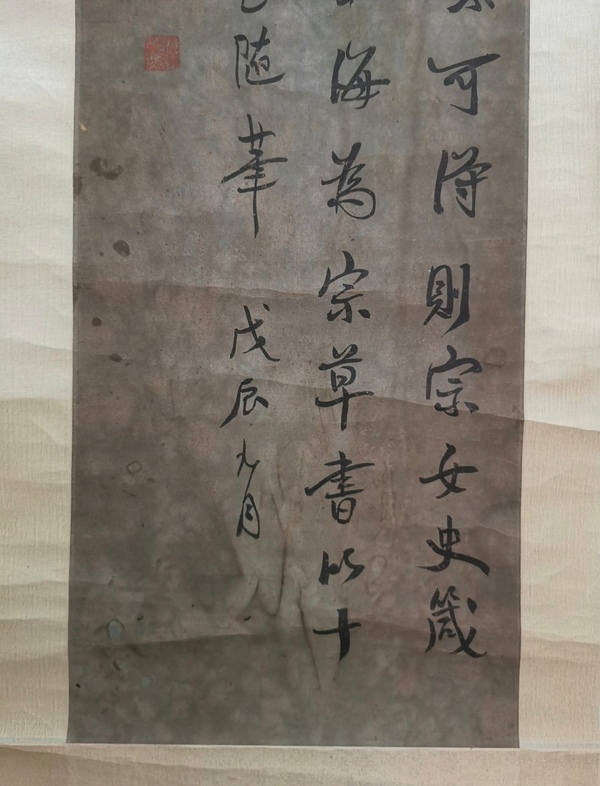 可得則宗女史箴
海為宗草書以十
随筆
戊辰九月